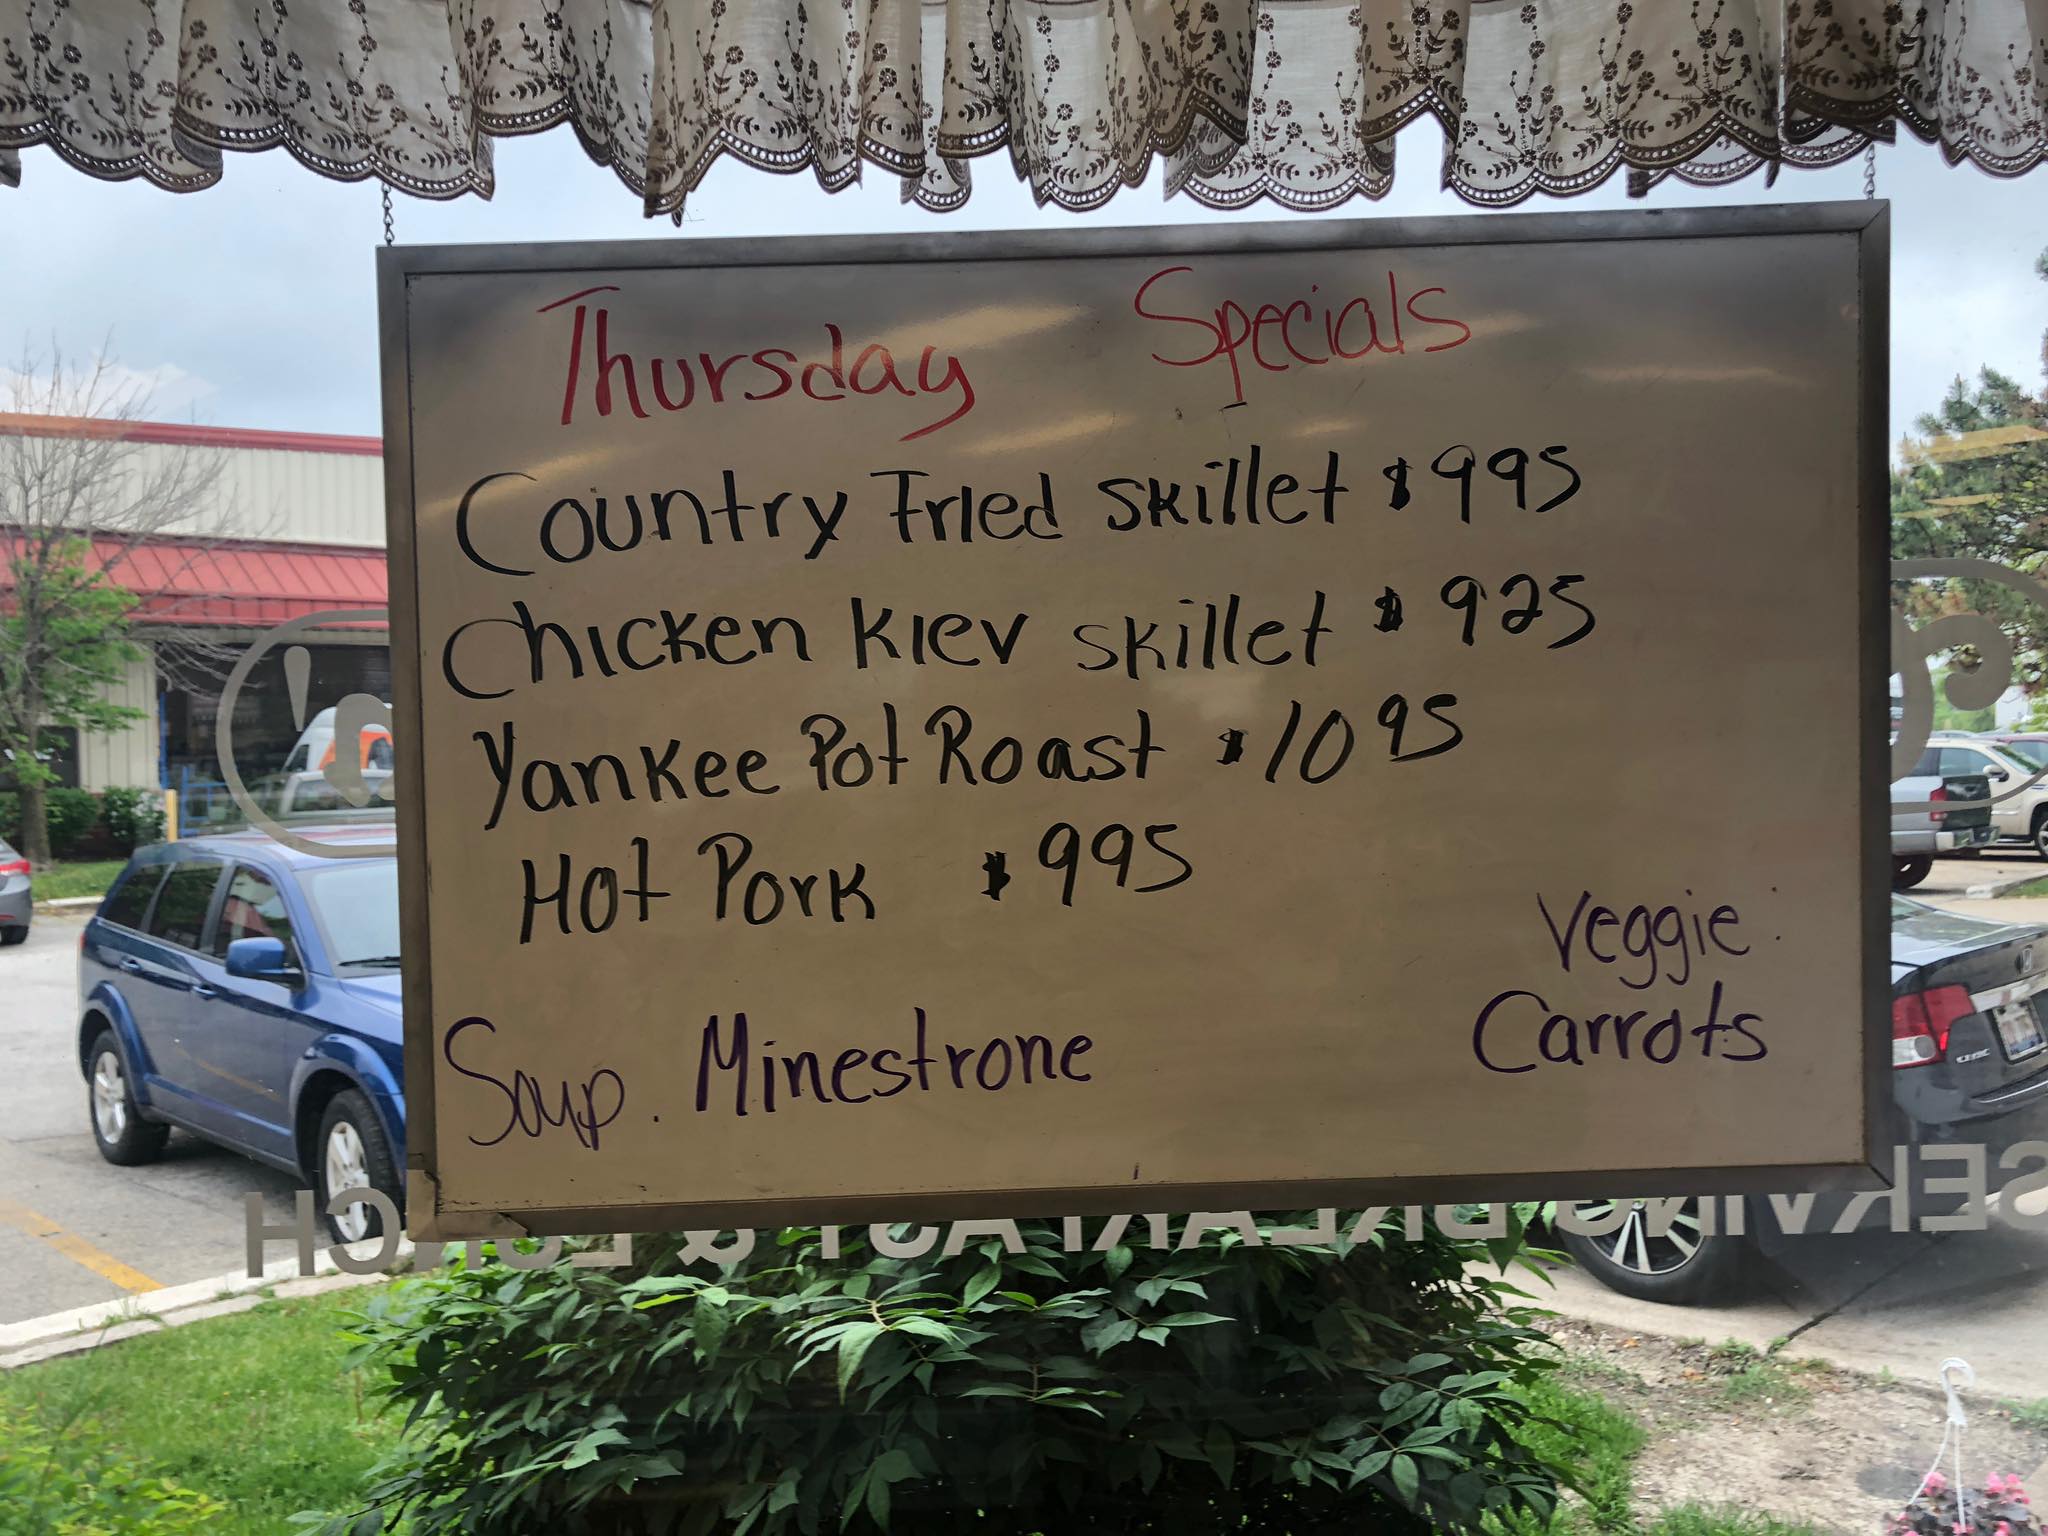 Thursday Specials
Country Fried Skillet $995
Chicken Kiev Skillet $925
Yankee Pot Roast $1095
Hot Pork $995
Veggie:
Carrots
Soup. Minestrone
SERVING BREAKFAST & LUNCH
CIVIC